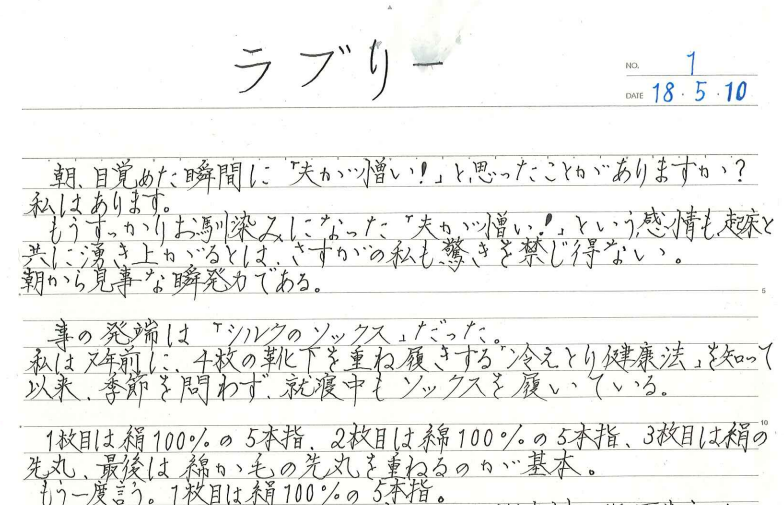 ラブリー
NO. 1
DATE 18・5・10
朝、目覚めた瞬間に「夫がッ憎い!」と思ったことがありますか?
私はあります。
もうすっかりお馴染みになった「夫がッ憎い!」という感情も起床と
共に湧き上がるとは、さすがの私も驚きを禁じ得ない。
朝から見事な瞬発力である。
5
事の発端は「シルクのソックス」だった。
私は7年前に、4枚の靴下を重ね履きする「冷えとり健康法」を知って
以来、季節を問わず、就寝中もソックスを履いている。
10
1枚目は絹100%の5本指、2枚目は綿100%の5本指、3枚目は絹の
先丸、最後は綿か毛の先丸を重ねるのが基本。
もう一度言う。1枚目は絹100%の5本指。